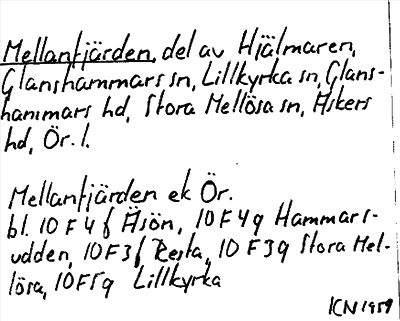 Mellanfjärden, del av Hjälmaren,
Glanshammars sn, Lillkyrka sn, Glans-
hammars hd, Stora Mellösa sn, Askers
hd, Ör. l.
Mellanfjärden ek Ör.
bl. 10 F 4 f Äsön, 10 F 4 g Hammars-
udden, 10 F 3 f Resta, 10 F 3 g Stora Mel-
lösa, 10 F 5 g Lillkyrka
ICN 1959